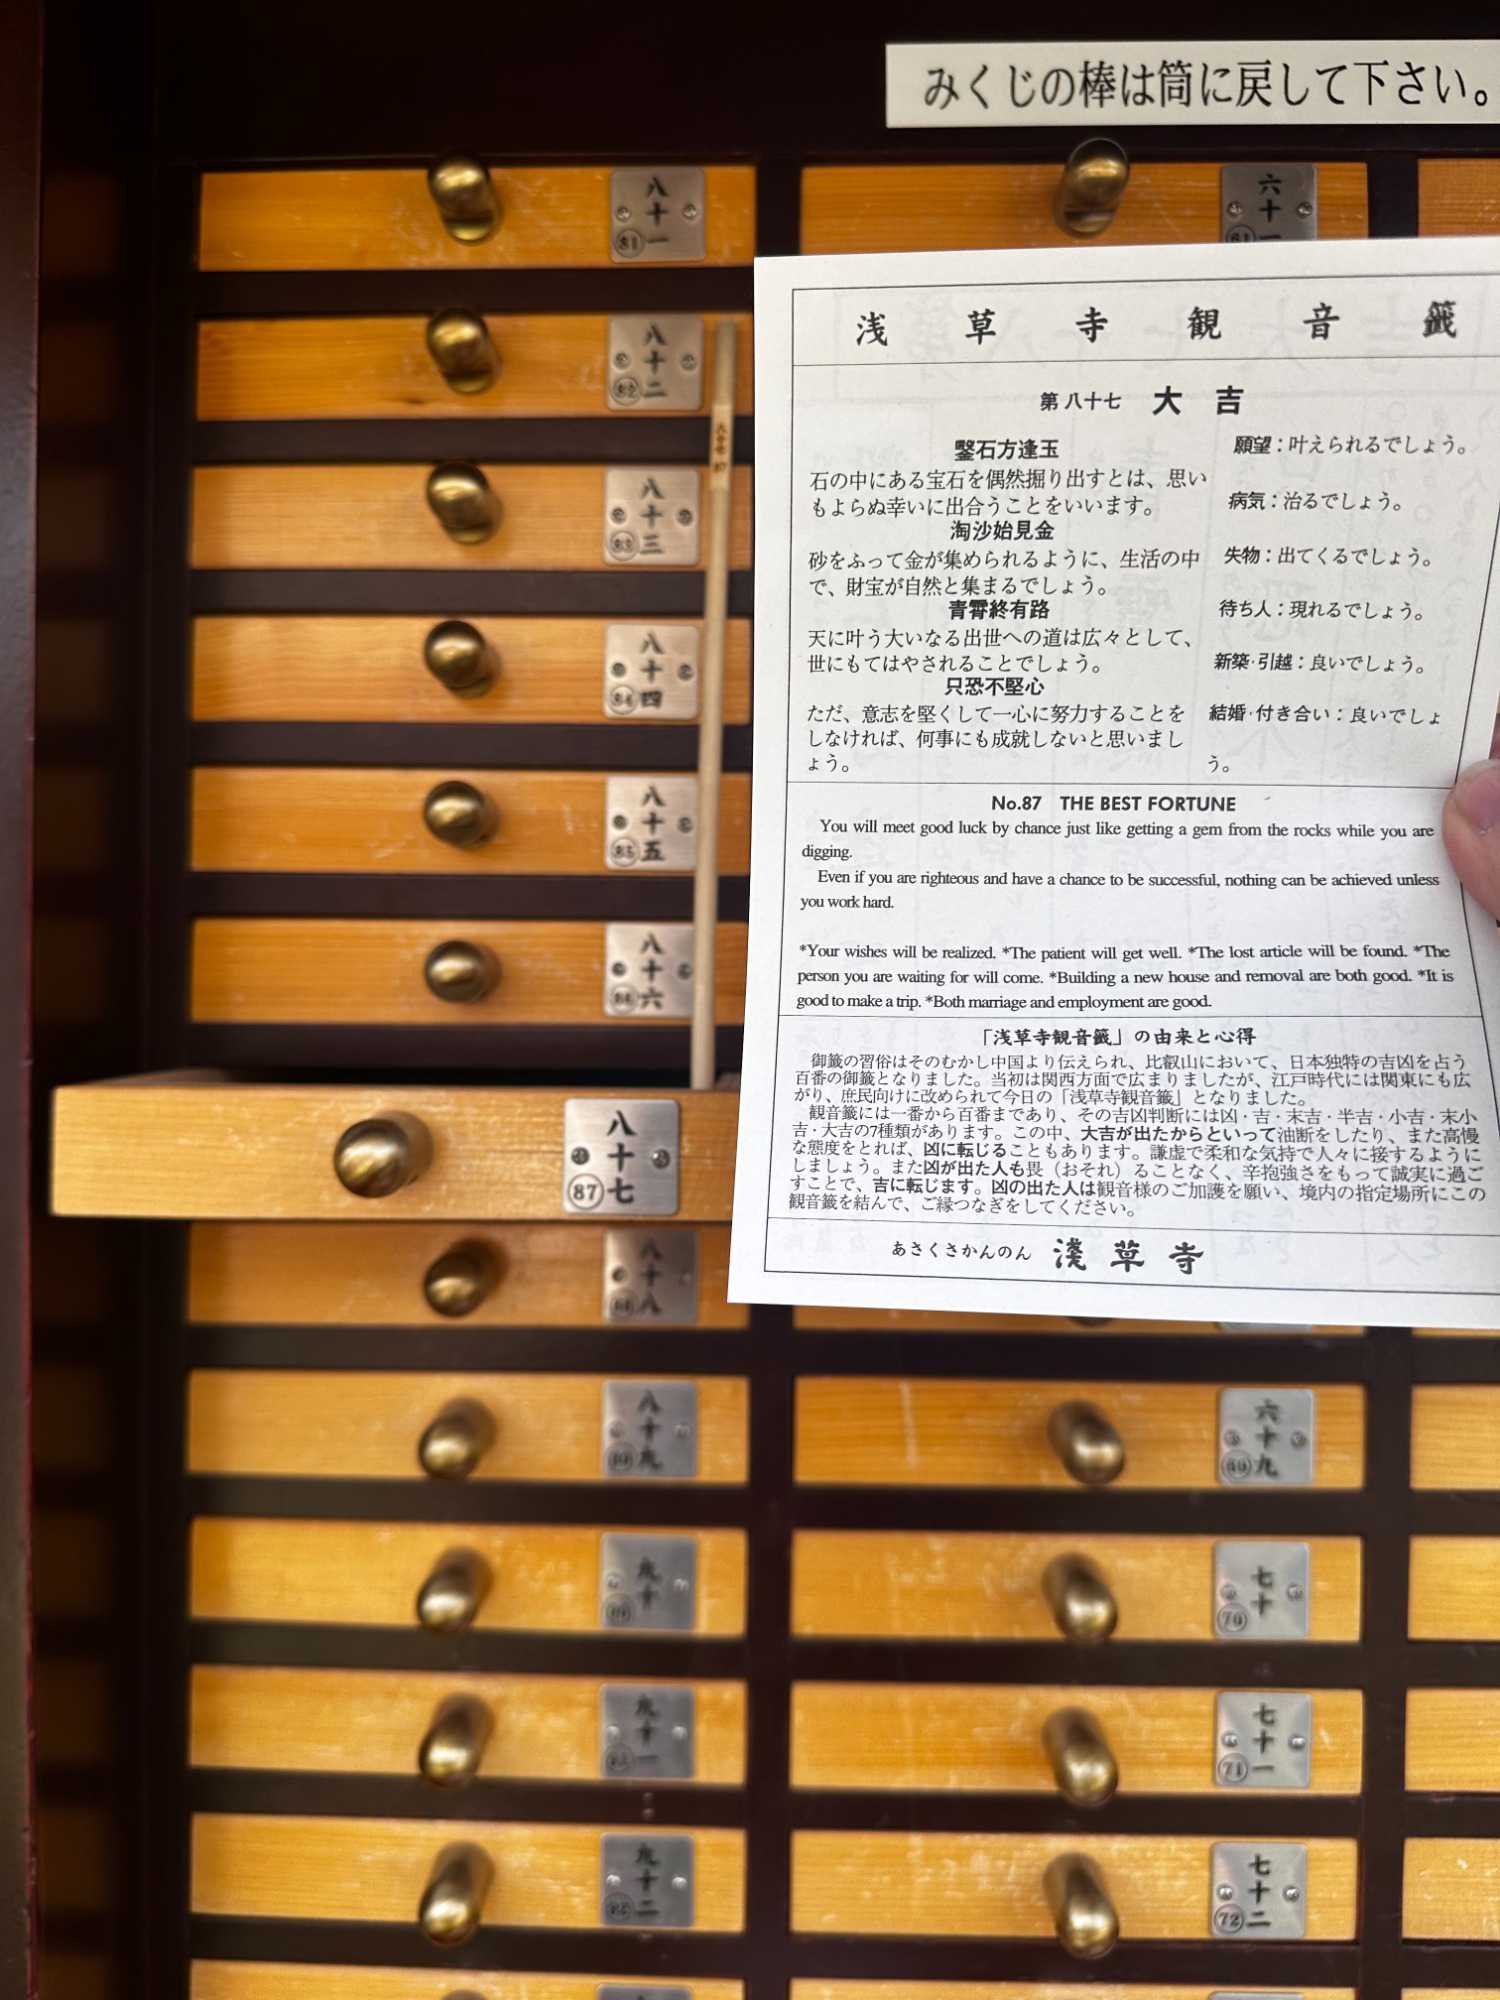 みくじの棒は筒に戻して下さい。
八十一
81
六十一
61
八十二
82
八十三
83
八十四
84
八十五
85
八十六
86
八十七
87
八十八
88
八十九
89
九十
90
九十一
91
九十二
92
六十九
69
七十
70
七十一
71
七十二
72
浅草寺観音籤
第八十七 大吉
鑿石方逢玉
石の中にある宝石を偶然掘り出すとは、思い
もよらぬ幸いに出合うことをいいます。
淘沙始見金
砂をふって金が集められるように、生活の中
で、財宝が自然と集まるでしょう。
青霄終有路
天に叶う大いなる出世への道は広々として、
世にもてはやされることでしょう。
只恐不堅心
ただ、意志を堅くして一心に努力することを
しなければ、何事にも成就しないと思いまし
ょう。
願望：叶えられるでしょう。
病気：治るでしょう。
失物：出てくるでしょう。
待ち人：現れるでしょう。
新築·引越：良いでしょう。
結婚·付き合い：良いでしょ
う。
No.87 THE BEST FORTUNE
You will meet good luck by chance just like getting a gem from the rocks while you are
digging.
Even if you are righteous and have a chance to be successful, nothing can be achieved unless
you work hard.
*Your wishes will be realized. *The patient will get well. *The lost article will be found. *The
person you are waiting for will come. *Building a new house and removal are both good. *It is
good to make a trip. *Both marriage and employment are good.
「浅草寺観音籤」の由来と心得
御籤の習俗はそのむかし中国より伝えられ、比叡山において、日本独特の吉凶を占う
百番の御籤となりました。当初は関西方面で広まりましたが、江戸時代には関東にも広
がり、庶民向けに改められて今日の「浅草寺観音籤」となりました。
観音籤には一番から百番まであり、その吉凶判断には凶·吉·末吉·半吉·小吉·末小
吉·大吉の7種類があります。この中、大吉が出たからといって油断をしたり、また高慢
な態度をとれば、凶に転じることもあります。謙虚で柔和な気持で人々に接するように
しましょう。また凶が出た人も畏（おそれ）ることなく、辛抱強さをもって誠実に過ご
すことで、吉に転じます。凶の出た人は観音様のご加護を願い、境内の指定場所にこの
観音籤を結んで、ご縁つなぎをしてください。
あさくさかんのん 淺草寺